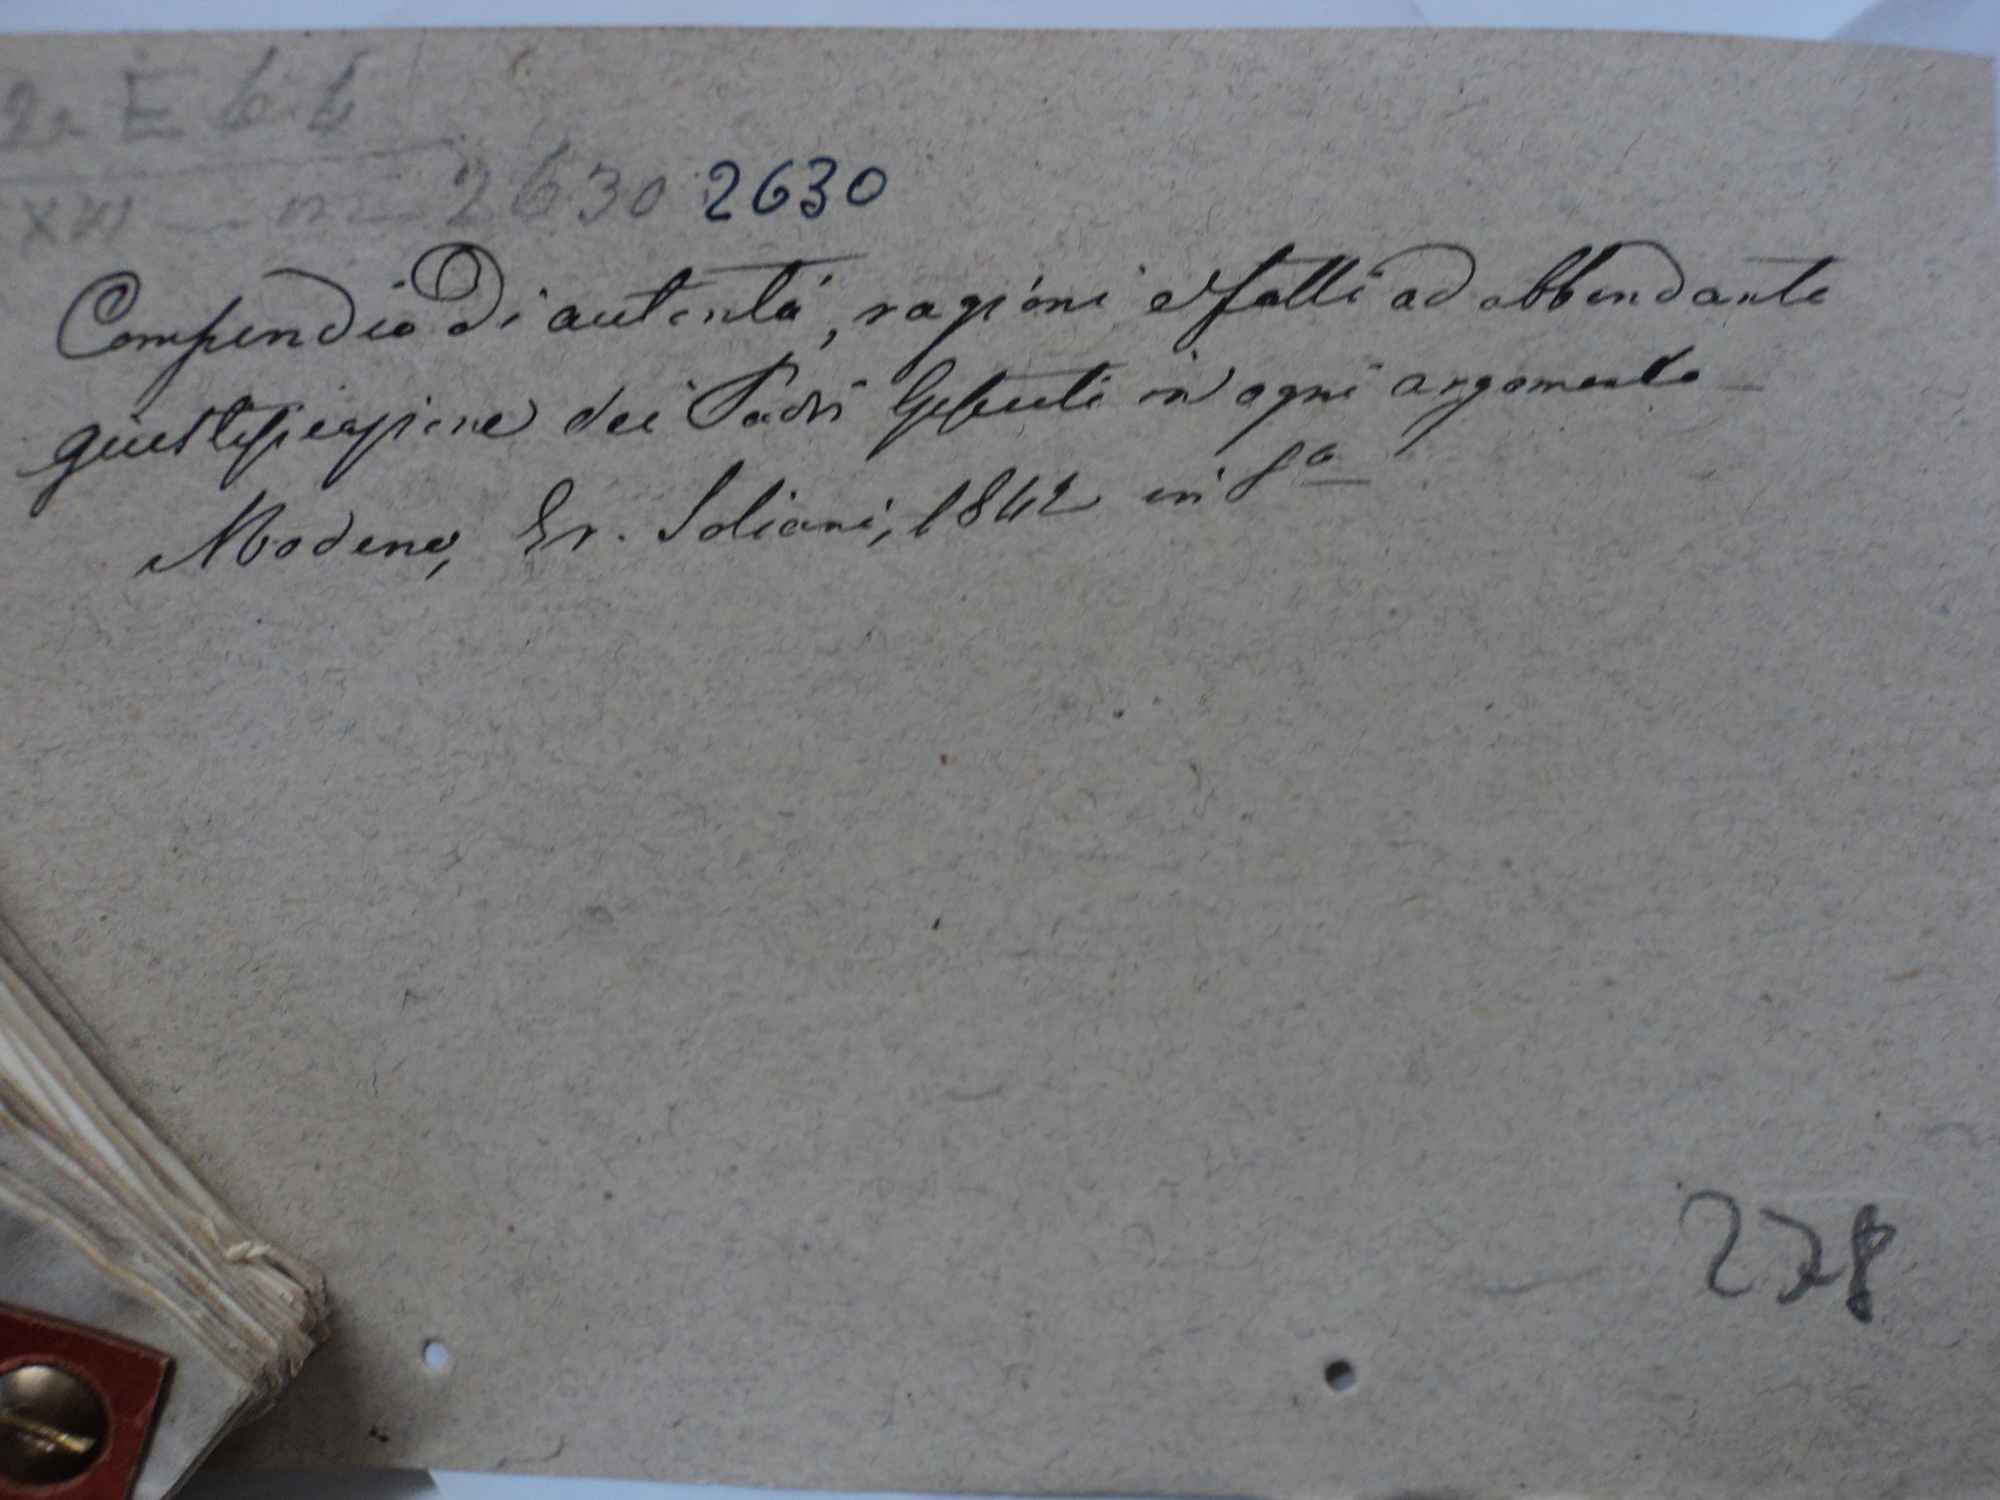 E 6.6
XXVI - nº 2630 2630
Compendio di autorità, ragioni e fatti ad abbondante
giustificazione dei Padri Gesuiti in ogni argomento
Modena, Er. Soliani, 1842 in 8º
278